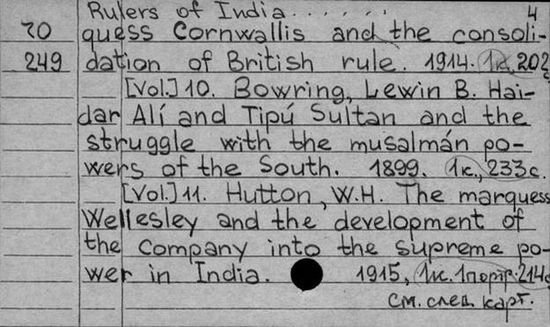 Rulers of India....... 4
70 quess Cornwallis and the consoli-
249 dation of British rule. 1914. 1к, 202
[Vol.] 10. Bowring, Lewin B. Hai-
dar Alí and Tipú Sultan and the
struggle with the musalmán po-
wers of the South. 1899. 1к., 233с.
[Vol.] 11. Hutton, W.H. The marquess
Wellesley and the development of
the company into the supreme po-
wer in India. 1915, 1к. 1портр. 214с
См. след. карт.